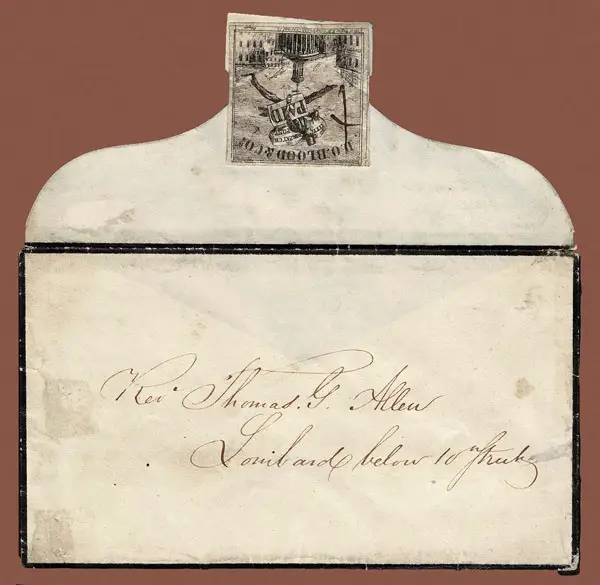 D.O. BLOOD & CO'S
PAID
Rev.d Thomas. G. Allen
Lombard below 10th Street